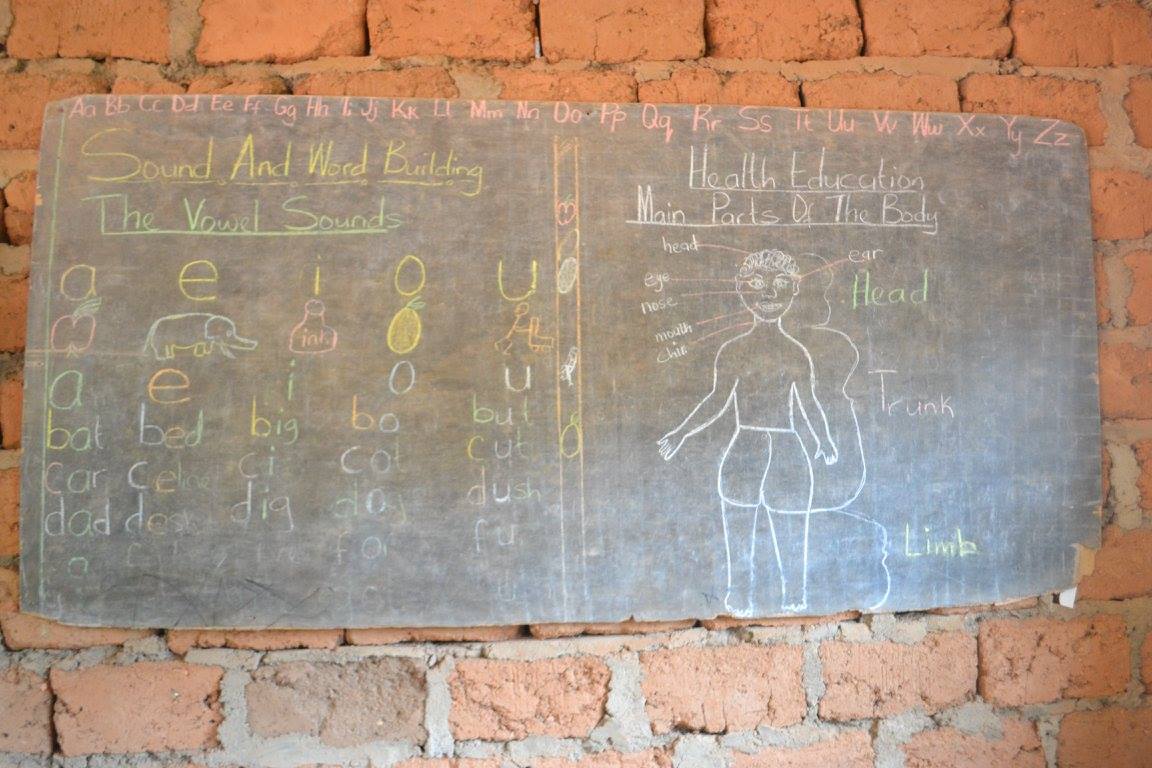 Aa Bb Cc Dd Ee Ff Gg Hh Ii Jj Kk Ll Mm Nn Oo Pp Qq Rr Ss Tt Uu Vv Ww Xx Yy Zz
Sound And Word Building
The Vowel Sounds
a e i o u
ink
a e i o u
bat bed big bo but
car ci cot cut
dad desk dig dush
fu
Health Education
Main Parts Of The Body
head
ear
eye
nose
mouth
chin
Head
Trunk
Limb